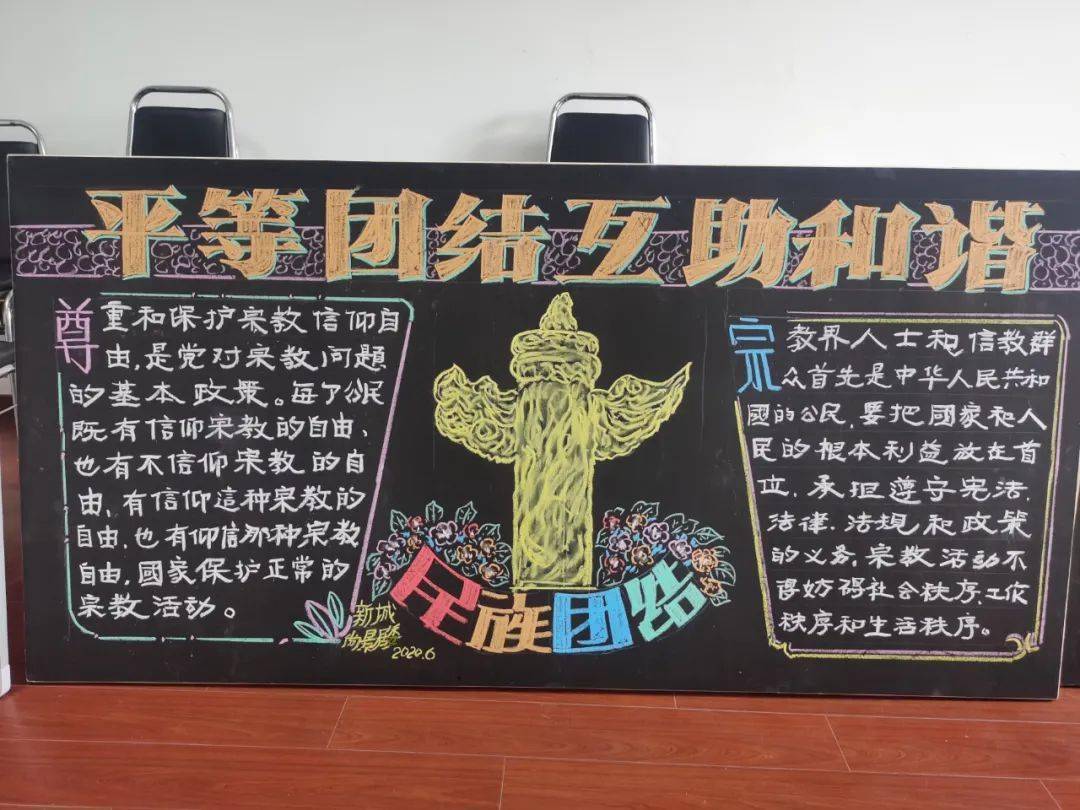 平等团结互助和谐
尊重和保护宗教信仰自
由,是党对宗教问題
的基本政策。每个公民
既有信仰宗教的自由、
也有不信仰宗教的自
由,有信仰這种宗教的
自由,也有仰信那种宗教
自由,國家保护正常的
宗教活动。
新城
2020.6
民族团结
宗教界人士和信教群
众首先是中华人民共和
國的公民,要把國家和人
民的根本利益放在首
立,承担遵守宪法,
法律,法規和政策
的义务,宗教活动不
得妨碍社会秩序、工作
秩序和生活秩序。